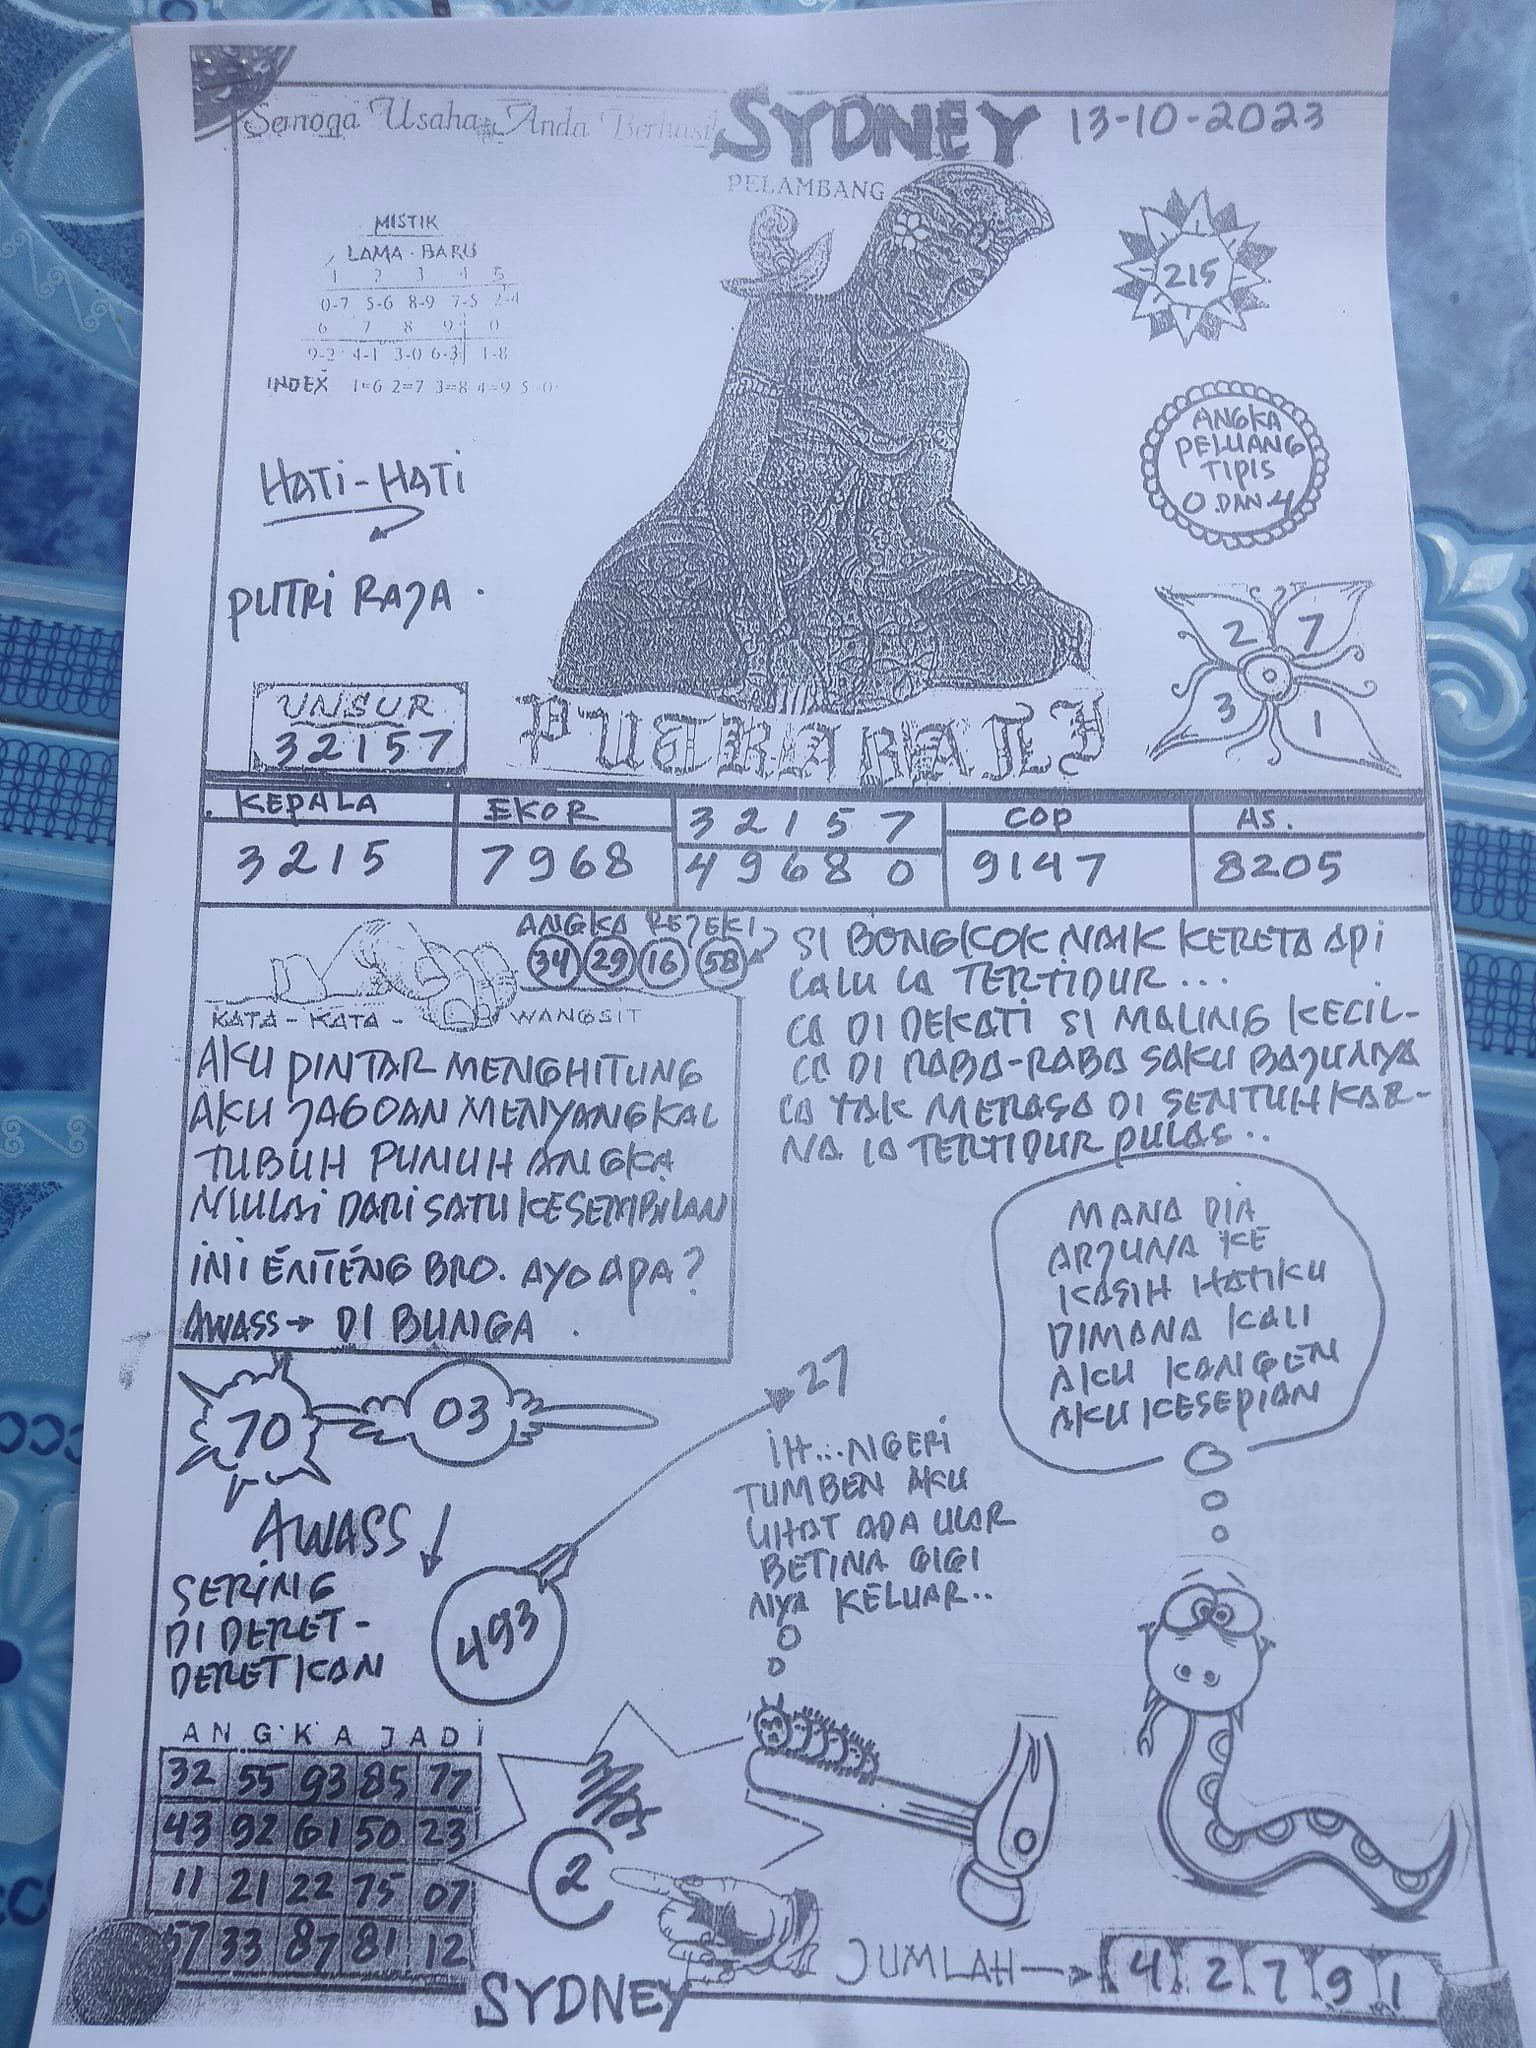 Semoga Usaha Anda Berhasil
SYDNEY 13-10-2023
PELAMBANG
MISTIK
LAMA - BARU
1 2 3 4 5
0-7 5-6 8-9 7-5 2-4
6 7 8 9 0
9-2 4-1 3-0 6-3 1-8
INDEX 1=6 2=7 3=8 4=9 5=0
215
HATI-HATI
PUTRI RAJA.
ANGKA
PELUANG
TIPIS
0 .DAN. 4
2 7
3 1
UNSUR
32157
PUTRA BALI
KEPALA EKOR 32157 COP AS.
3215 7968 49680 9147 8205
ANGKA REJEKI
34 29 16 58
KATA - KATA - WANGSIT
AKU PINTAR MENGHITUNG
AKU JAGOAN MENYANGKAL
TUBUH PUNUH ANGKA
MULAI DARI SATU KESEMBILAN
INI ENTENG BRO. AYO APA?
AWASS → DI BUNGA .
SI BONGKOK NAIK KERETA API
LALU IA TERTIDUR...
IA DI DEKATI SI MALING KECIL-
IA DI RABA-RABA SAKU BAJUNYA
IA TAK MERASA DI SENTUH KAR-
NA IA TERTIDUR PULAS..
MANA DIA
ARJUNA KE
KASIH HATIKU
DIMANA KALI
AKU KANGEN
AKU KESEPIAN
70 03
27
IH...NGERI
TUMBEN AKU
LIHAT ADA ULAR
BETINA GIGI
NYA KELUAR..
AWASS ↓
SERING
DI DERET-
DERETKAN
493
ANGKA JADI
32 55 93 85 77
43 92 61 50 23
11 21 22 75 07
57 33 87 81 12
2
SYDNEY
JUMLAH → 4 2 7 9 1